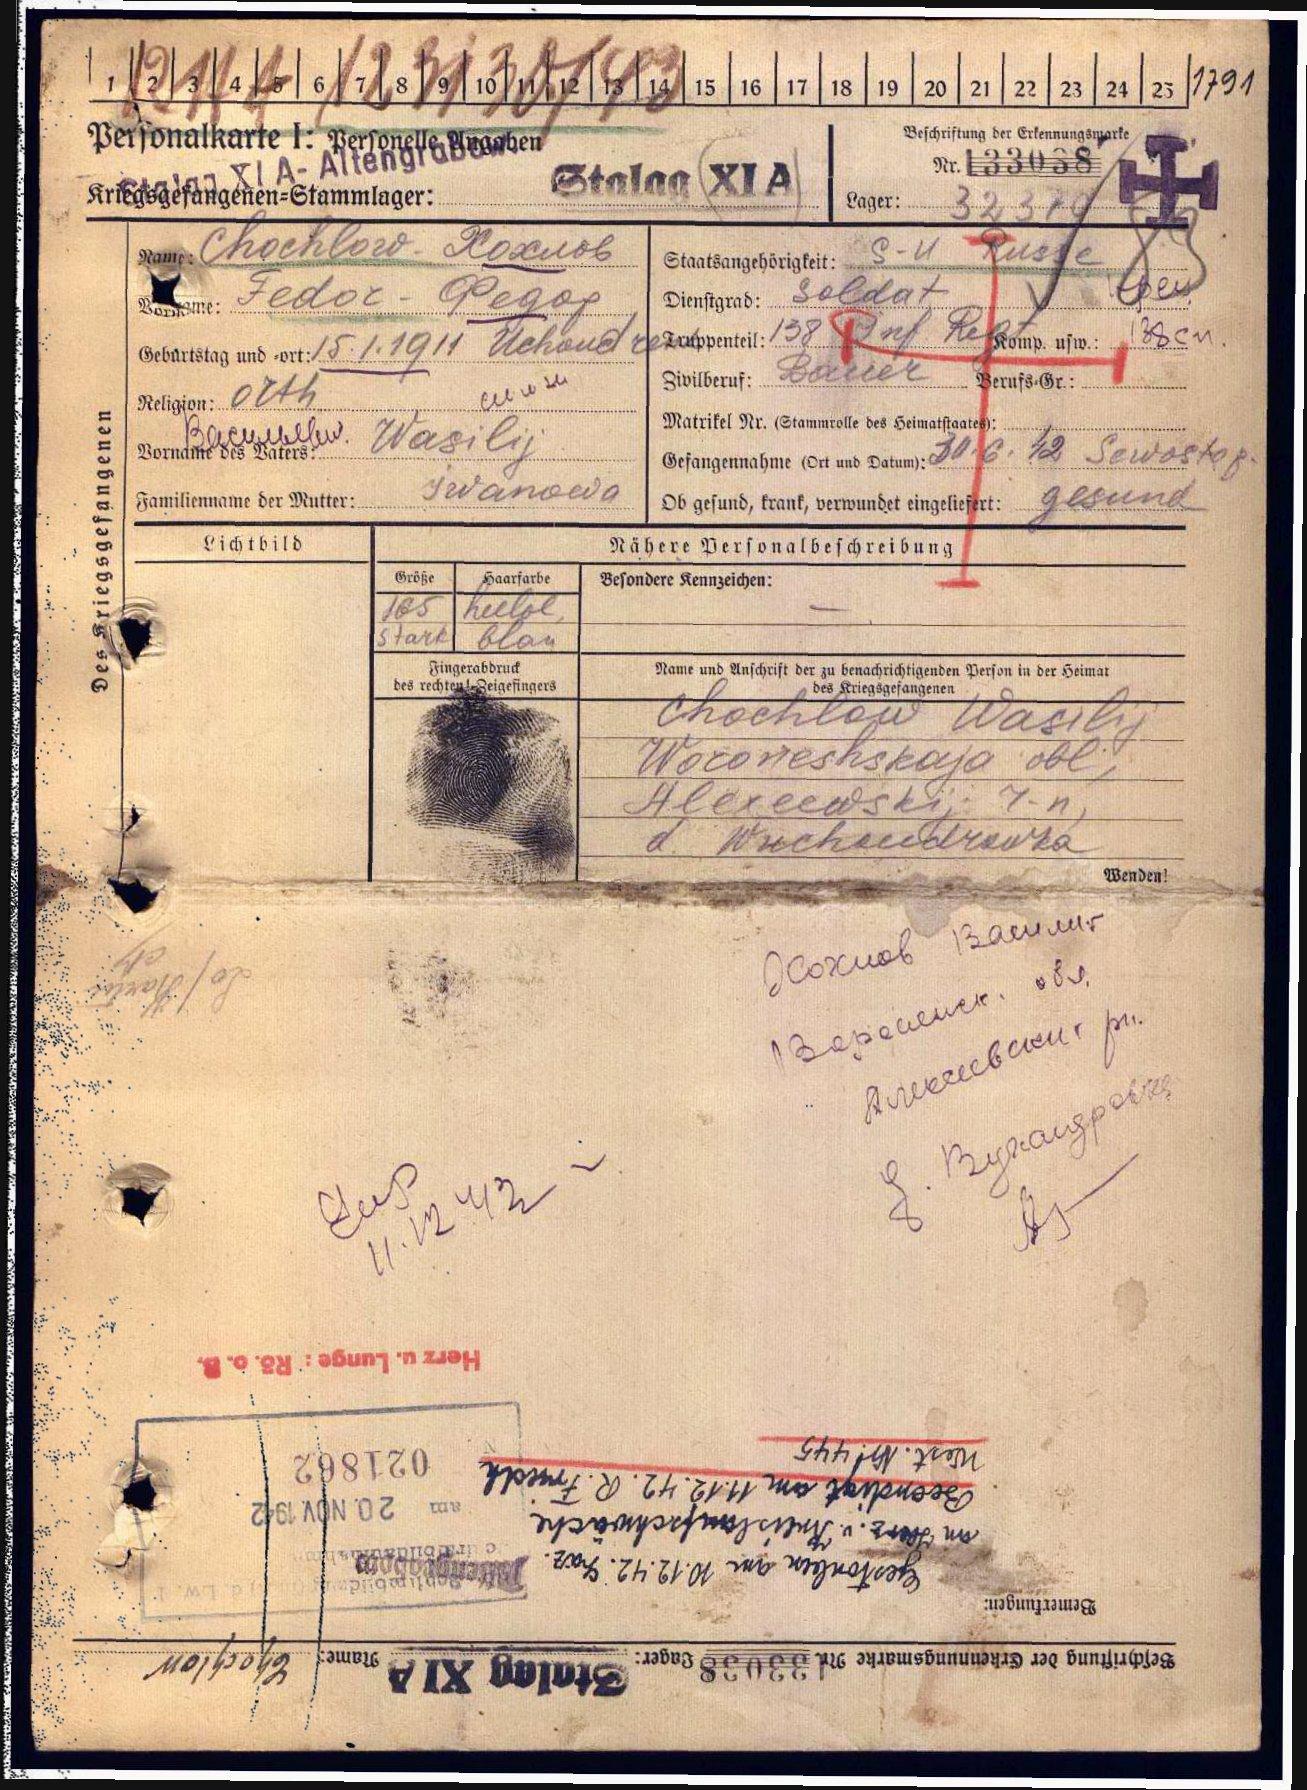 1 2 3 4 5 6 7 8 9 10 11 12 13 14 15 16 17 18 19 20 21 22 23 24 25 1791
Personalkarte I: Personelle Angaben
Stalag XI A - Altengrabow
Kriegsgefangenen=Stammlager: Stalag XI A
Beschriftung der Erkennungsmarke
Nr. 133038
Lager:
Des Kriegsgefangenen
Name: Chochlow - Хохлов
Vorname: Fedor - Федор
Geburtstag und =ort: 15.1.1911
Religion: orth
Vorname des Vaters: Wasilij
Familienname der Mutter: Iwanowa
Staatsangehörigkeit: S-U Russe
Dienstgrad: Soldat
Truppenteil: 138 Inf Regt Komp. usw.:
Zivilberuf: Bauer Berufs=Gr.:
Matrikel Nr. (Stammrolle des Heimatstaates):
Gefangennahme (Ort und Datum): 30.6.42 Sewastop.
Ob gesund, krank, verwundet eingeliefert: gesund
Lichtbild
Nähere Personalbeschreibung
Größe Haarfarbe
165
stark blau
Besondere Kennzeichen: —
Fingerabdruck
des rechten! Zeigefingers
Name und Anschrift der zu benachrichtigenden Person in der Heimat
des Kriegsgefangenen
Chochlow Wasilij
Woroneshskaja obl,
Alexeewskij r-n,
Wenden!
Хохлов Василий
обл.
Алексеевский рн.
д. Вухандровка
11.12 42
Herz u. Lunge: Rö. o. B.
021862
am 20. NOV. 1942
Altengrabow
Bemerkungen:
Gestorben am 10.12.42. Laz.
an Herz. u. Kreislaufschwäche
Beerdigt am 11.12.42. R. Friedh
West. Nr. 445
Beschriftung der Erkennungsmarke Nr. 133038 Lager: Stalag XI A Name: Chochlow